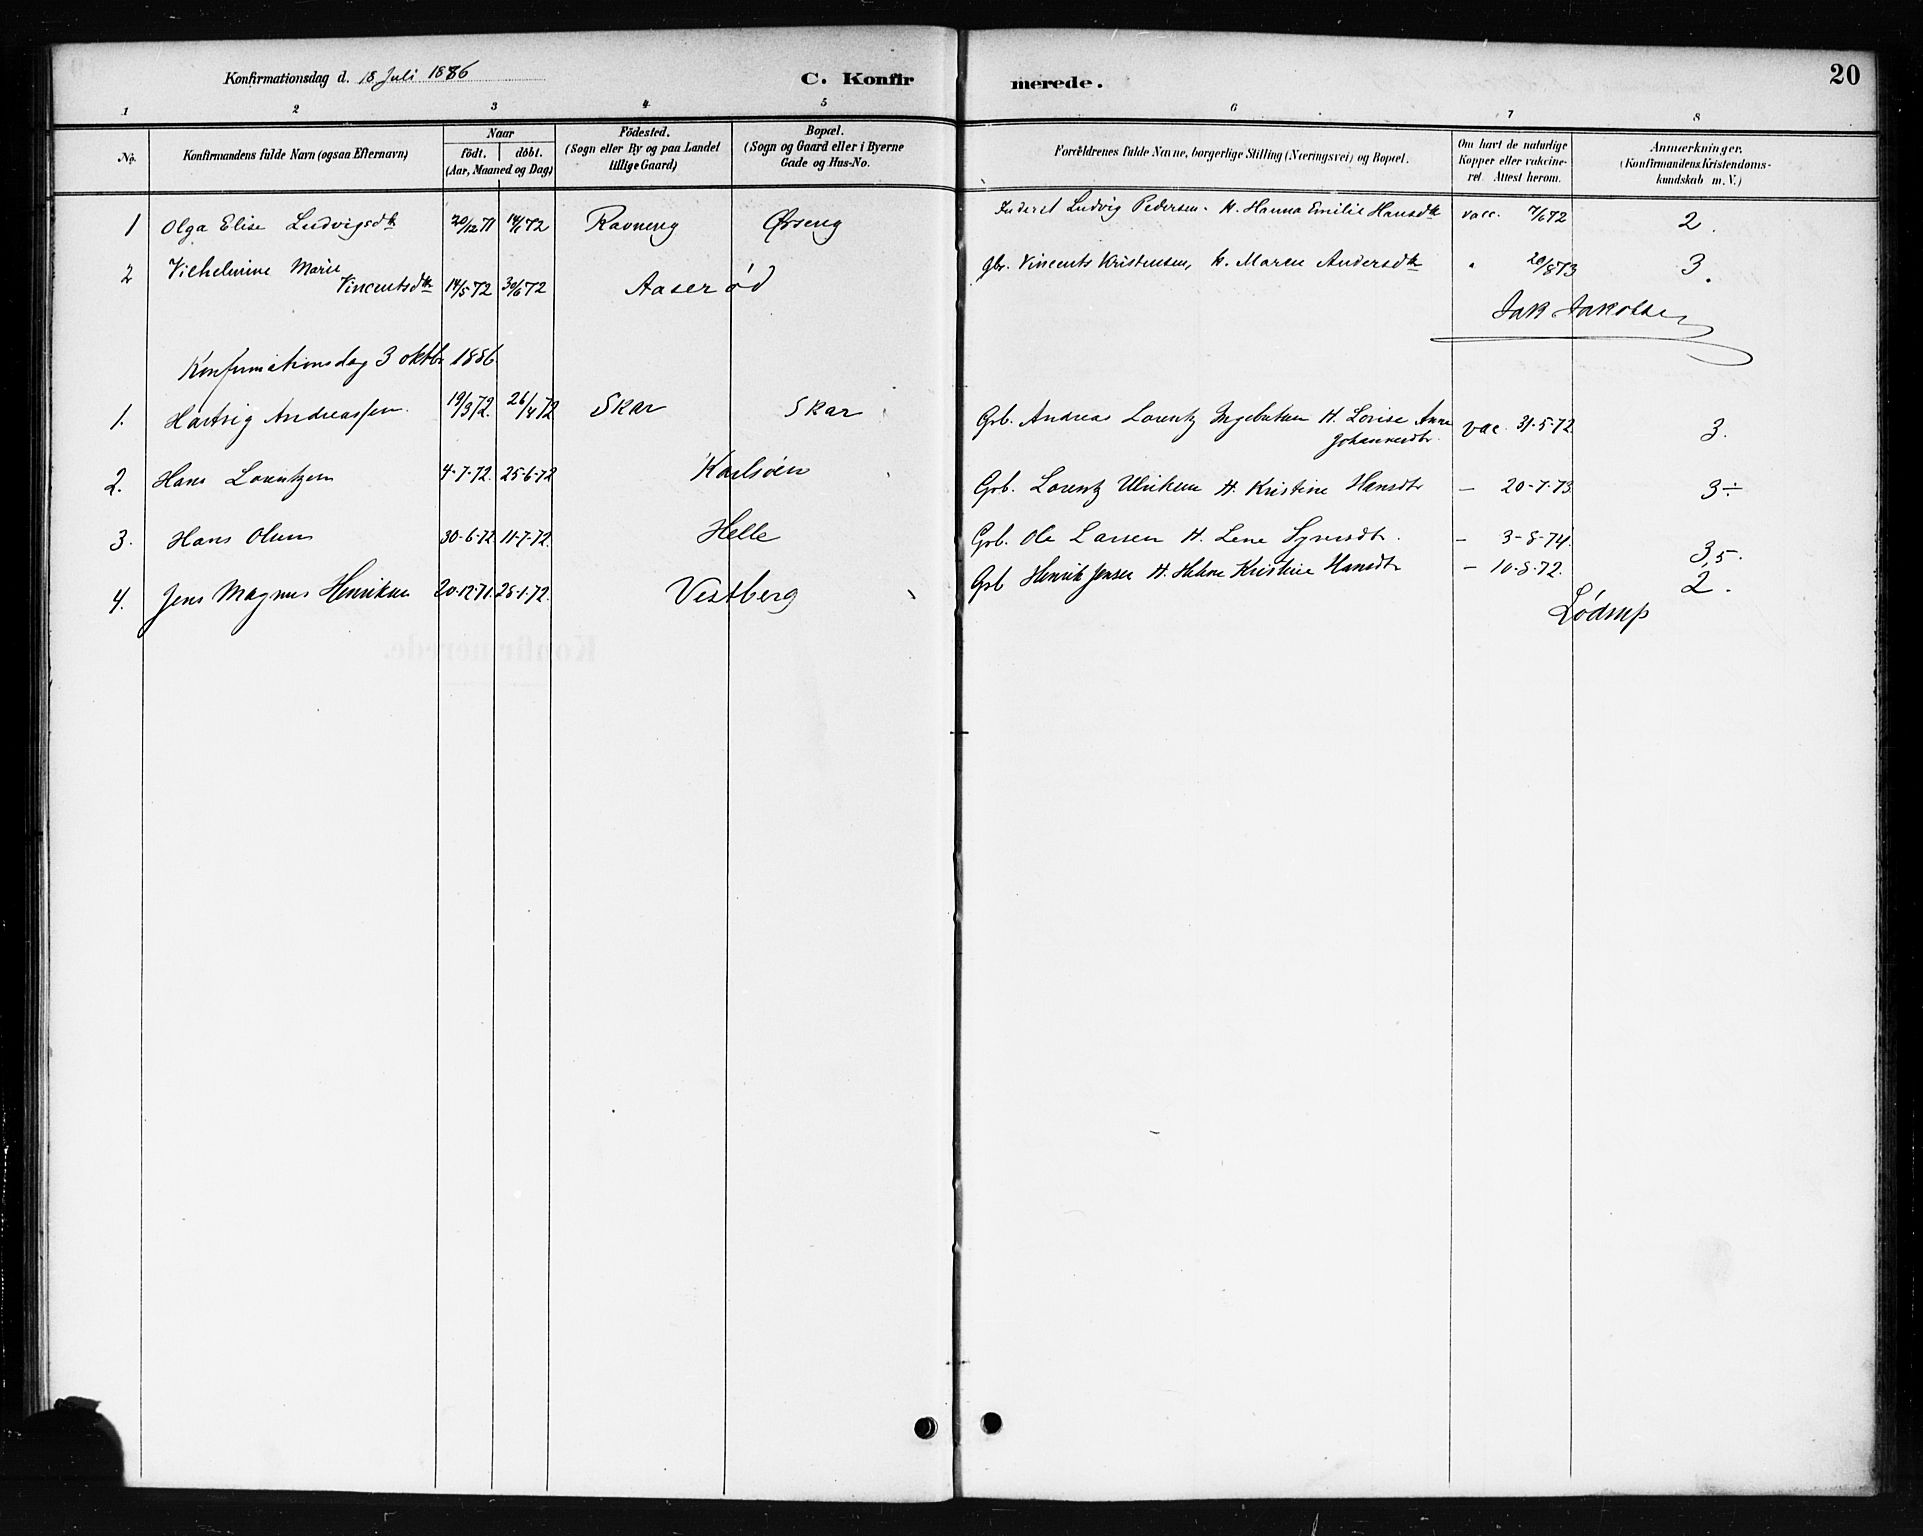 Konfirmationsdag d. 18 Juli 1886 C. Konfirmerede. 20
1 2 3 4 5 6 7 8
No. Konfirmandens fulde Navn (ogsaa Efternavn) Naar födt. döbt. (Aar, Maaned og Dag) Födested. (Sogn eller By og paa Landet tillige Gaard) Bopæl. (Sogn og Gaard eller i Byerne Gade og Hus-No. Forældrenes fulde Navne, borgerlige Stilling (Næringsvei) og Bopæl. Om havt de naturlige Kopper eller vakcineret. Attest herom. Anmærkninger. (Konfirmandens Kristendomskundskab m. V.)
1 Olga Elise Ludvigsdtr 20/12 71 14/1 72 Ravneng Ørseng Inderst Ludvig Pedersen. H. Hanna Emilie Hansdtr vacc. 7/6 72 2.
2 Vilhelmine Marie Vincentsdtr 14/5 72 30/6 72 Aaserød gbr. Vincents Kristensen, H. Maren Andersdtr " 20/8 73 3.
Jak Jakobsen
Konfirmationsdag 3 oktbr 1886
1. Hartvig Andreassen. 19/3 72. 26/4 72 Skar Skar Grb. Andreas Lorentz Ingebretsen H. Lovise Anne Johannesdtr. vac. 31-5-72. 3.
2. Hans Lorentzen 4-7-72. 25-6-72 Karlsöen Grb. Lorentz Ulriksen H. Kristine Hansdtr — 20-7-73 3÷
3. Hans Olsen 30-6-72 11-7-72. Helle Grb. Ole Larsen H. Lene Syversdtr. — 3-8-74. 3,5.
4. Jens Magnus Henriksen 20-12-71. 25-1-72. Vestberg Grb Henrik Jensen H. Helene Kristine Hansdtr — 10-8-72. 2.
Lödrup